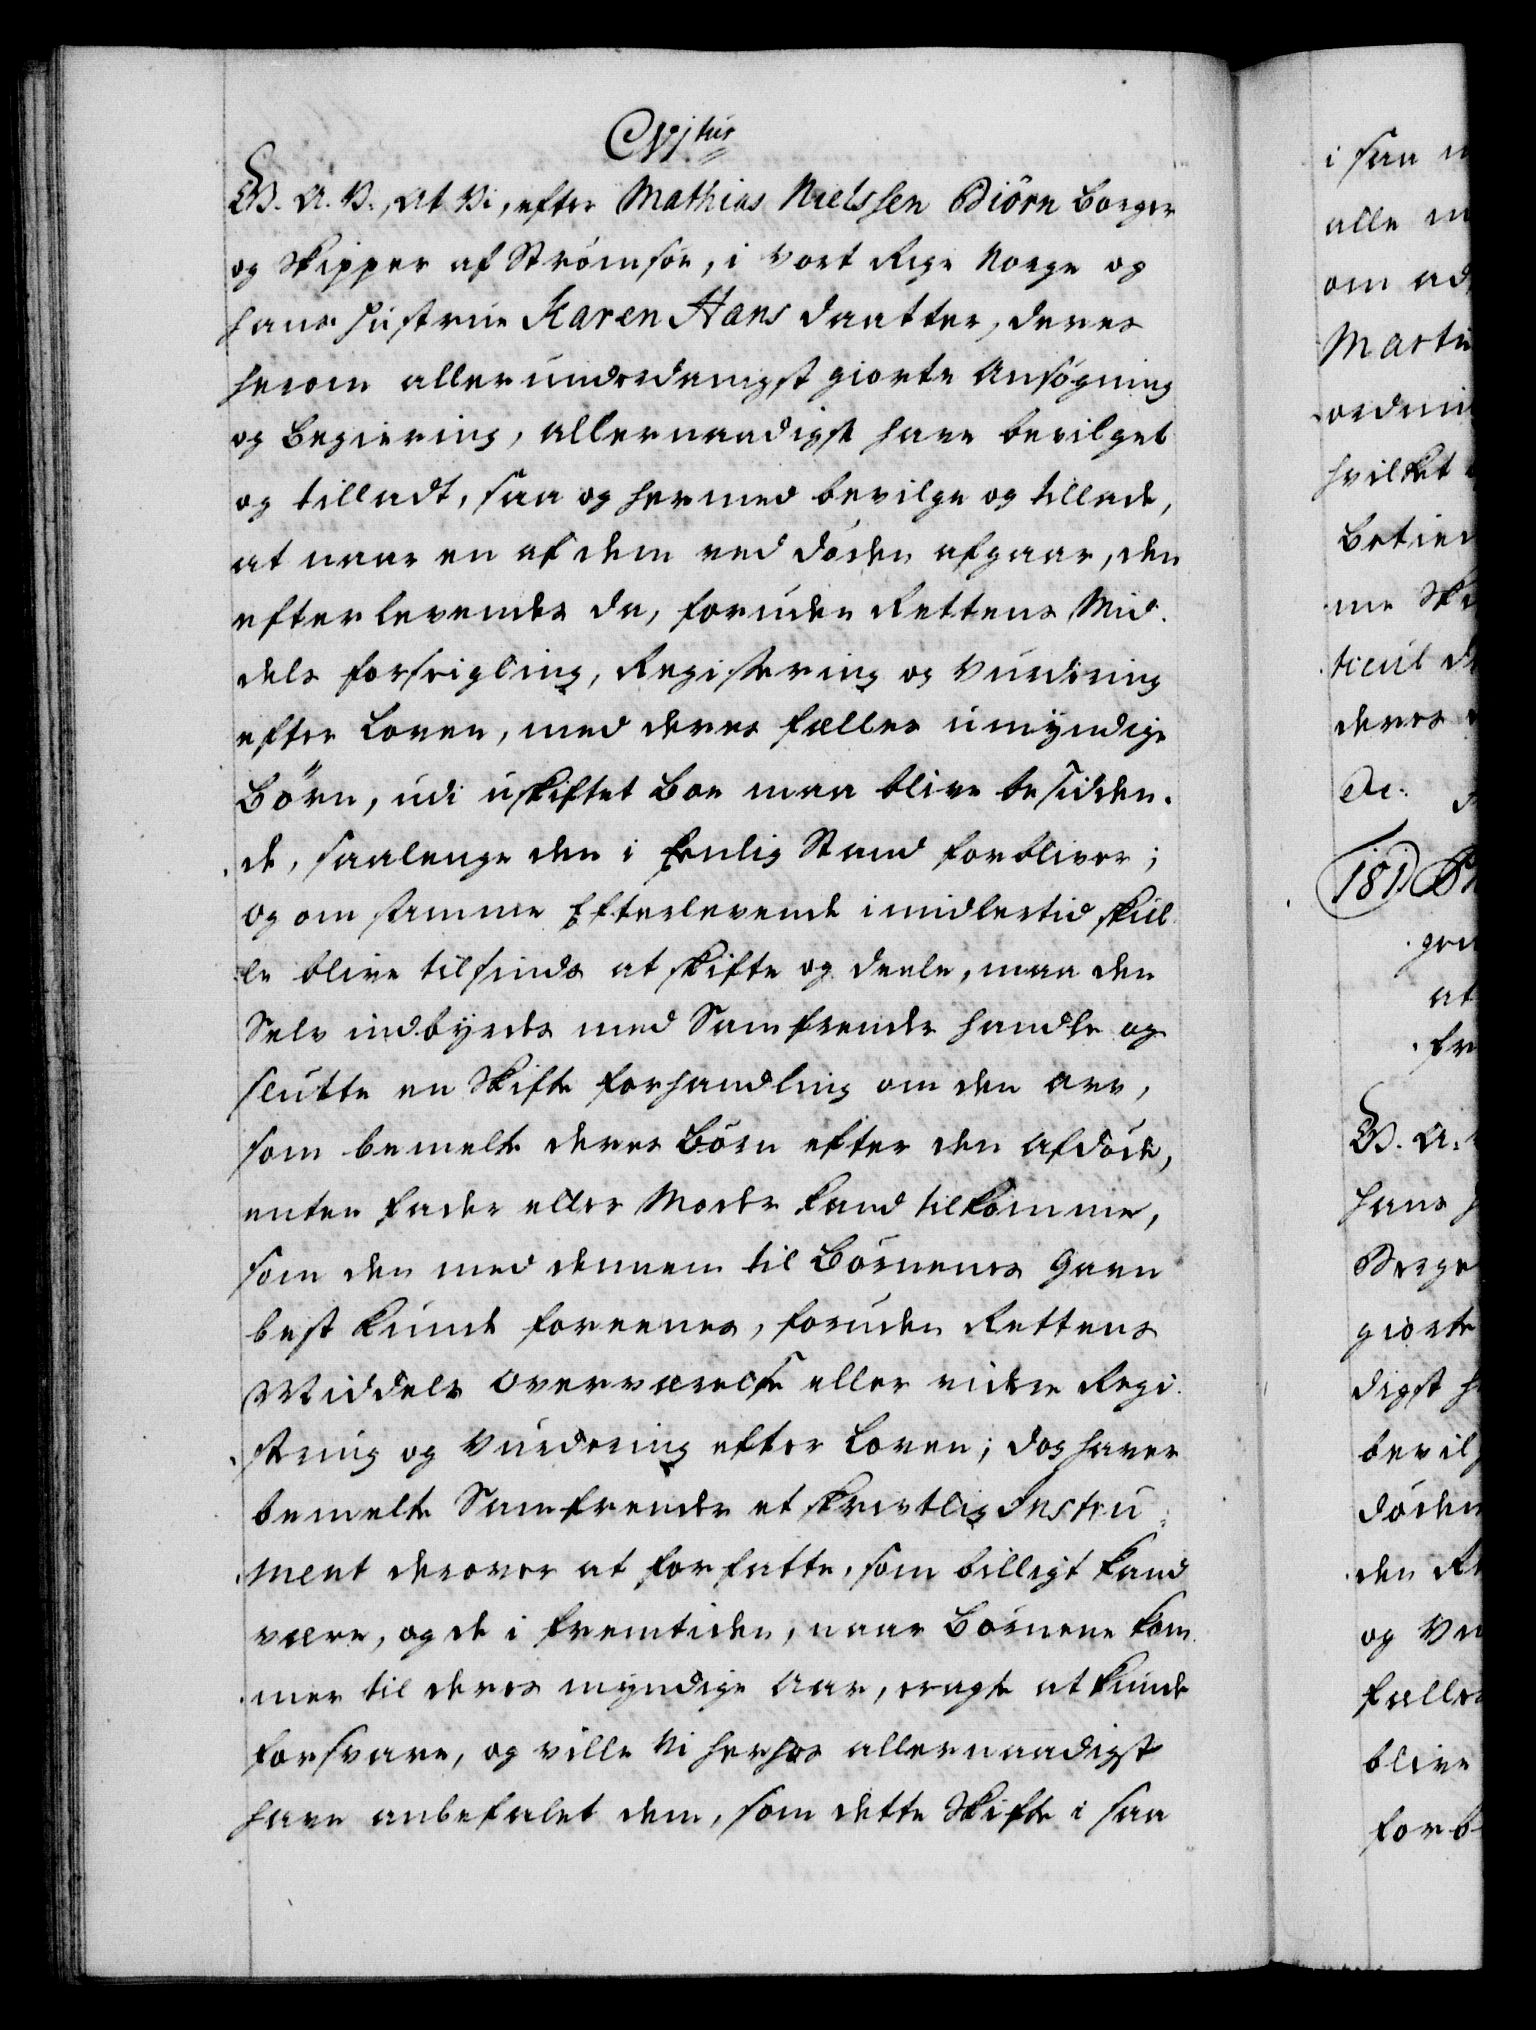 CVjtus
G. A. V., At Vi, efter Mathias Nielssen Biörn Borger
og Skipper af Strømsøe, i vort Rige Norge og
hans Hustrue Karen Hans daatter, deres
herom allerunderdanigst giorte Ansøgning
og Begiering, allernaadigst have bevilget
og tilladt, saa og hermed bevilge og tillade,
at naar en af dem ved døden afgaar, den
efterlevende da, foruden Rettens Mid-
dels forseigling, Registering og Vurdering
efter Loven, med deres fælles umyndige
Børn, udi uskiftet Boe maa blive besidden-
de, saalenge den i Eenlig Stand forbliver;
og om samme Efterlevende imidlertid skul-
le blive tilsinds at skifte og deele, maa den
Selv indbyrdes med Samfrender handle og
slutte en Skifte forhandling om den arv,
som bemelte deres Børn efter den Afdøde,
enten fader eller Moder kand tilkomme,
som den med dennem til Børnenes Gavn
best kunde foreenes, foruden Rettens
Middels Overværelse eller videre Regi-
string og Vurdering efter Loven; dog haver
bemelte Samfrender et skrivtlig Instru-
ment derover at forfatte, som billigt kand
være, og de i fremtiden, naar Børnene kom-
mer til deres myndige Aar, eragte at kunde
forsvare, og ville Vi herhos allernaadigst
have anbefalet dem, som dette Skifte i saa
i saa
alle
om
hvilket
deres
181
at
G. A.
hans
giorte
digst
døden
og
blive